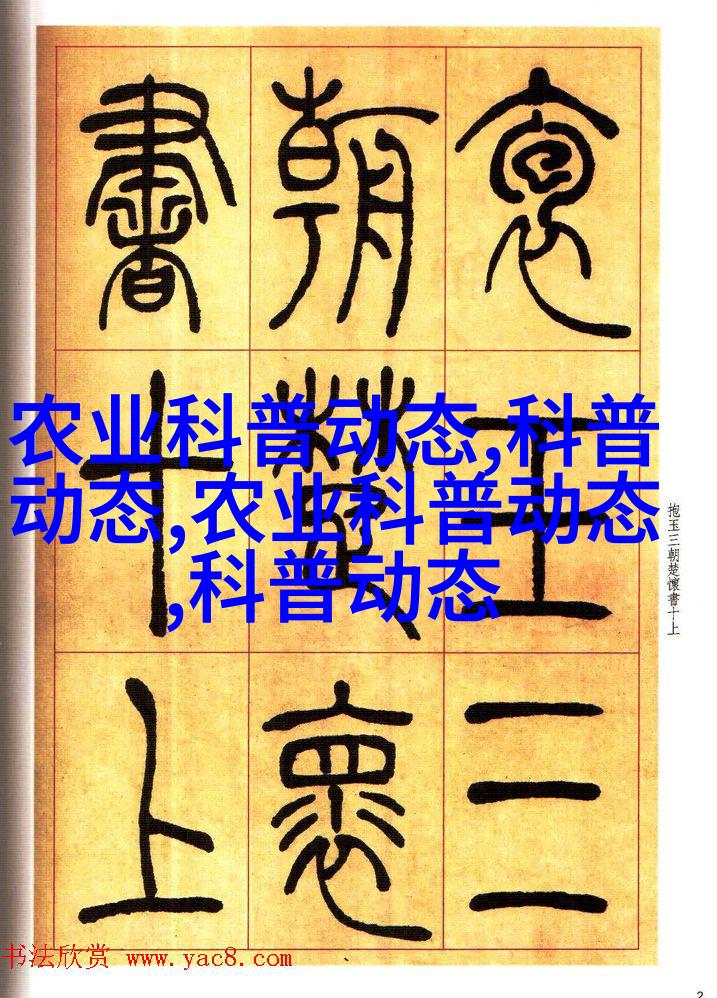 袌玉三
朝楚褱
書十上
农业科普动态,科普
动态,农业科普动态
,科普动态
抱玉三朝楚懷書十上
书法欣赏 www.yac8.com
2